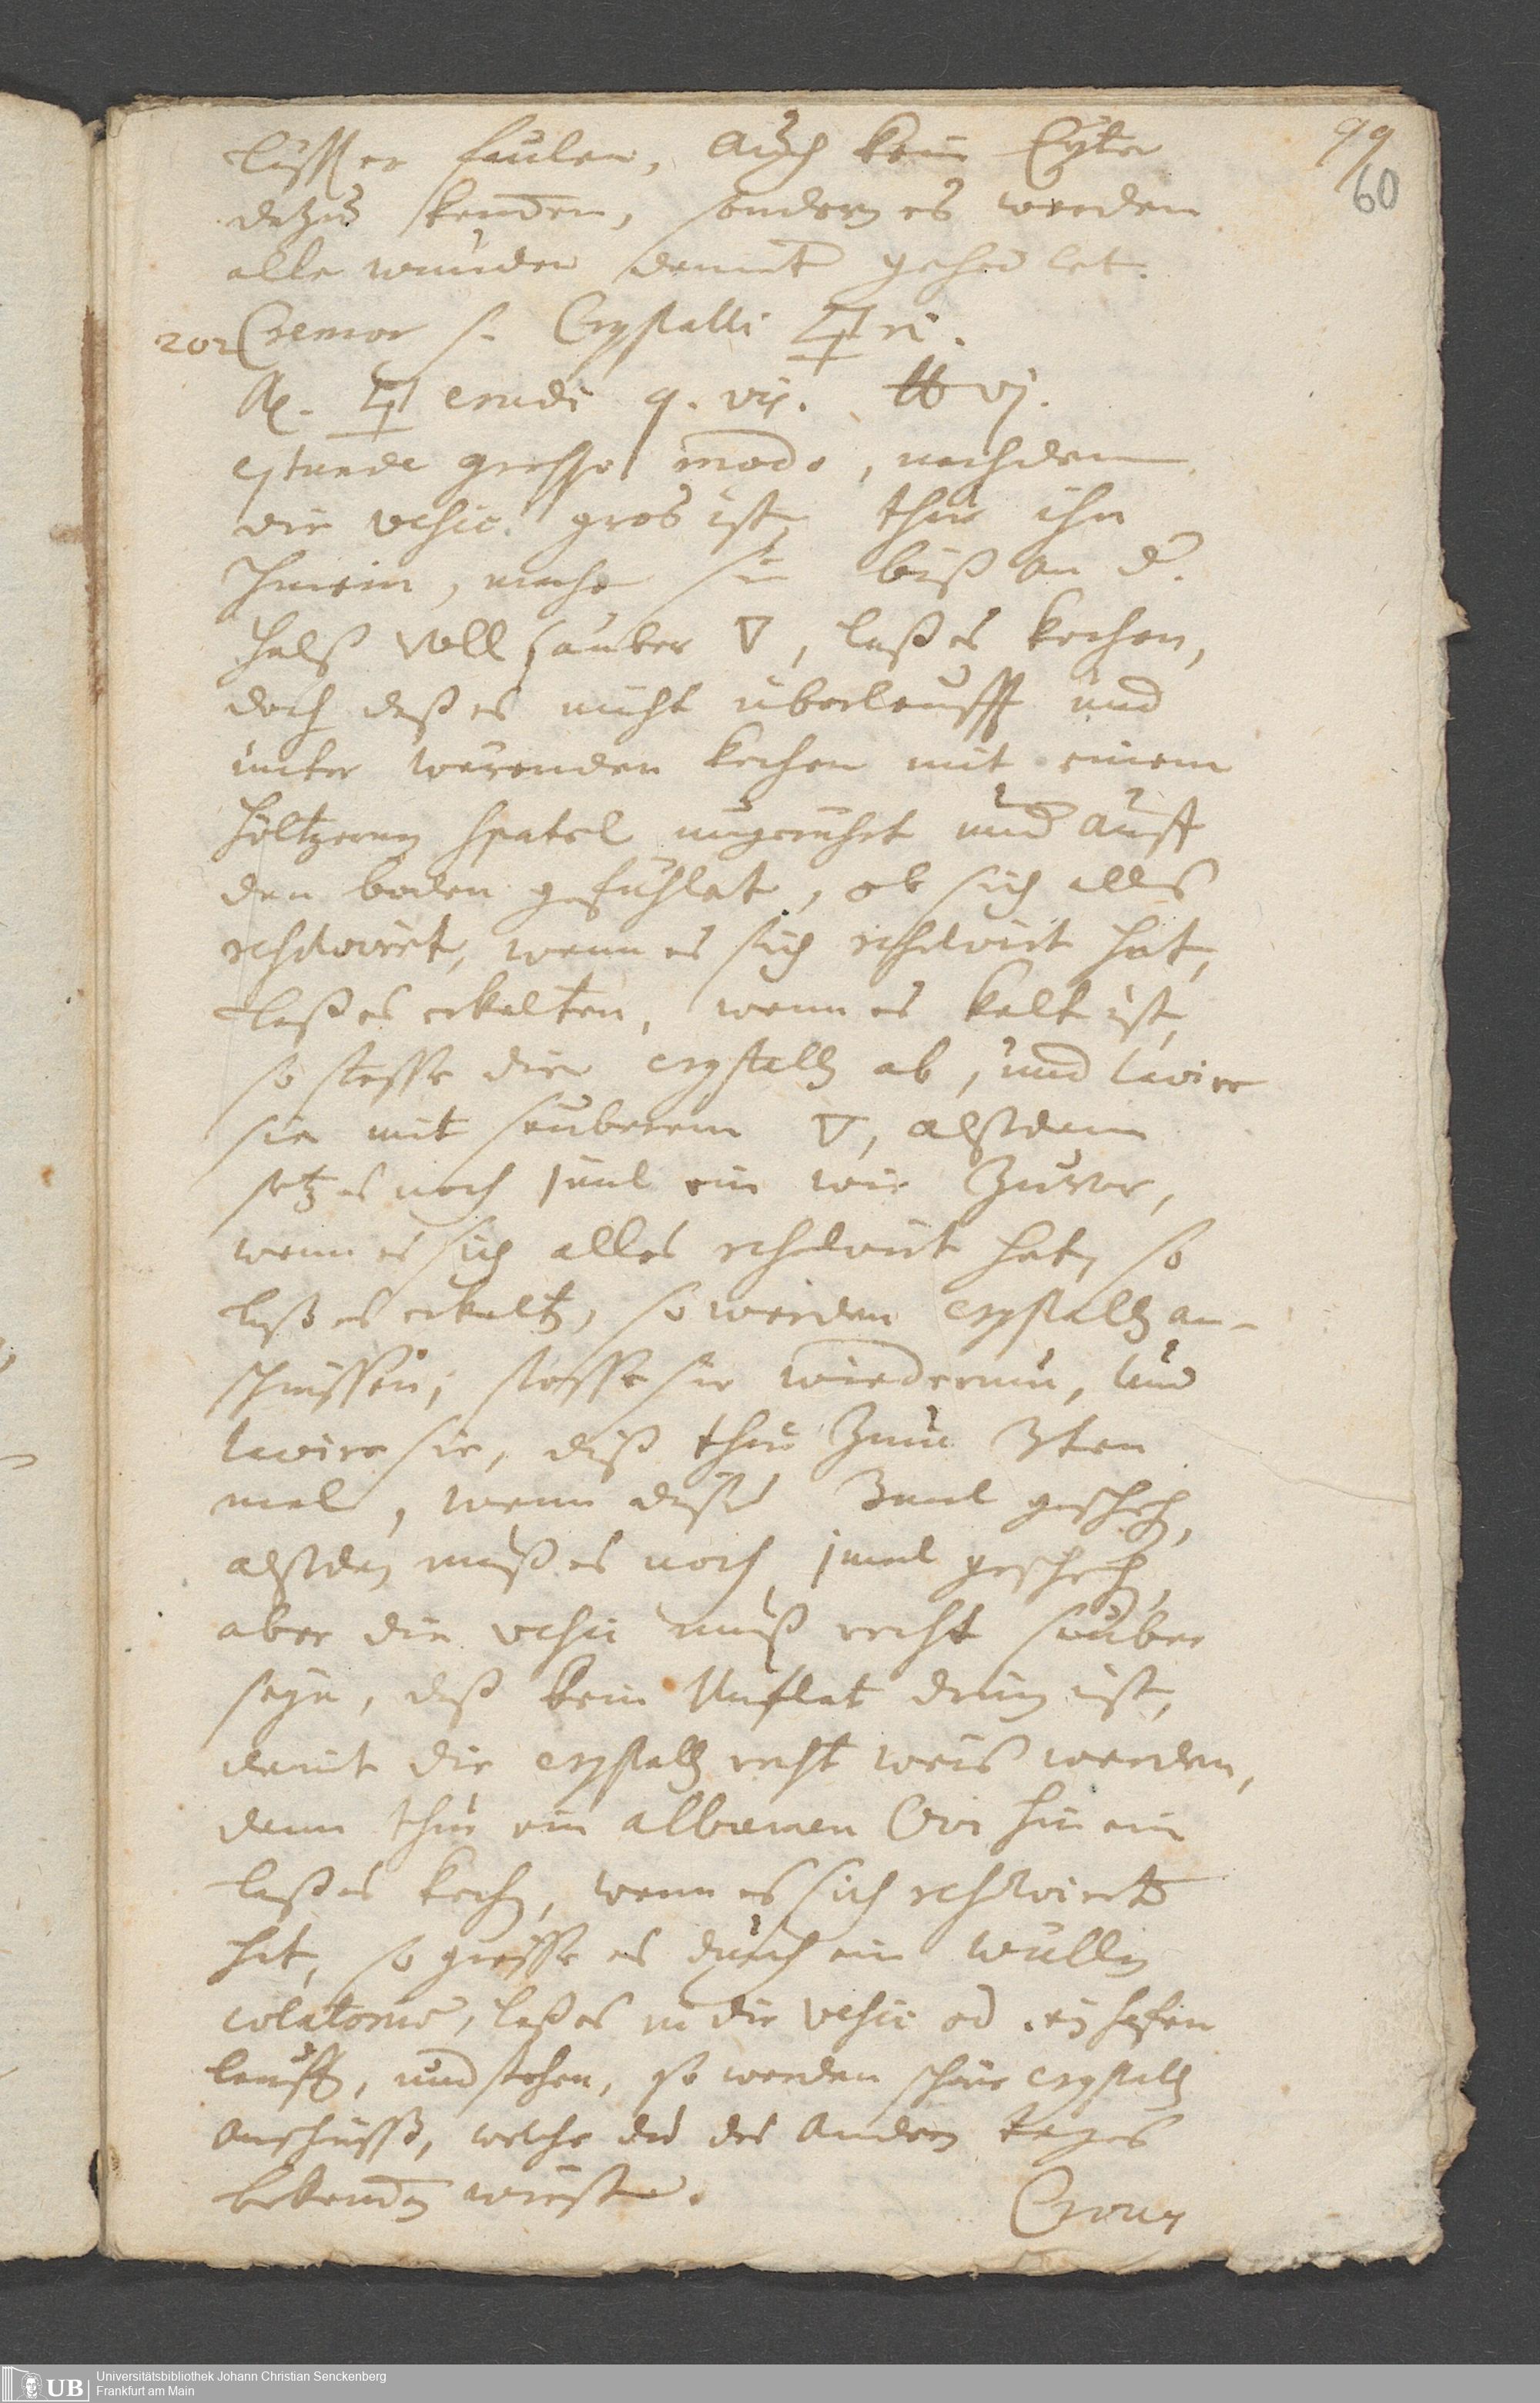 99
60
lässet faulen, Auch kein Eyter
dazu kom̅en, sondern es werden
alle wunden damit geheilet.
202 Cremor s. Crystalli 🜿ri.
℞. 🜿 crudi q. vis. ℔ vj.
contunde grosso modo, nachdem
die vesic. gros ist, thue ihn
hinein, mache sie biß an d.
Halß voll sauber ▽, laß es kochen,
doch daß es nicht überlaufft und
unter werenden kochen mit einem
höltzern spatel umgerührt und auff
den boden gefühlet, ob sich alles
resolvirt, wenn es sich resolvirt hat,
laß es erkalten, wenn es kalt ist,
so stosse die crystalln ab, und lavire
sie mit sauberem ▽, alßdann
setz es noch 1mal ein wie Zuvor,
wenn es sich alles resolvirt hat, so
laß es erkaltn, so werden crystalln an-
schiessen; stosse sie wiederum, und
lavire sie, diß thue Zum 3ten
mal, wenn diß 3mal geschehn,
alßden muß es noch 1mal geschehn,
aber die vesic muß recht sauber
seyn, daß kein Unflat drinn ist,
damit die crystalln recht weis werden,
dann thue ein albumen Ovi hinein
laß es kochn, wenn es sich resolvirt
hat, so giesse es durch ein wülln
colatorium, laß es in die vesic od. ein hafen
lauffn, und stehen, so werden schöne crystalln
Anschiessn, welche du des Andern tages
bekom̅en wirst.
Crocus
Universitätsbibliothek Johann Christian Senckenberg
Frankfurt am Main
UB